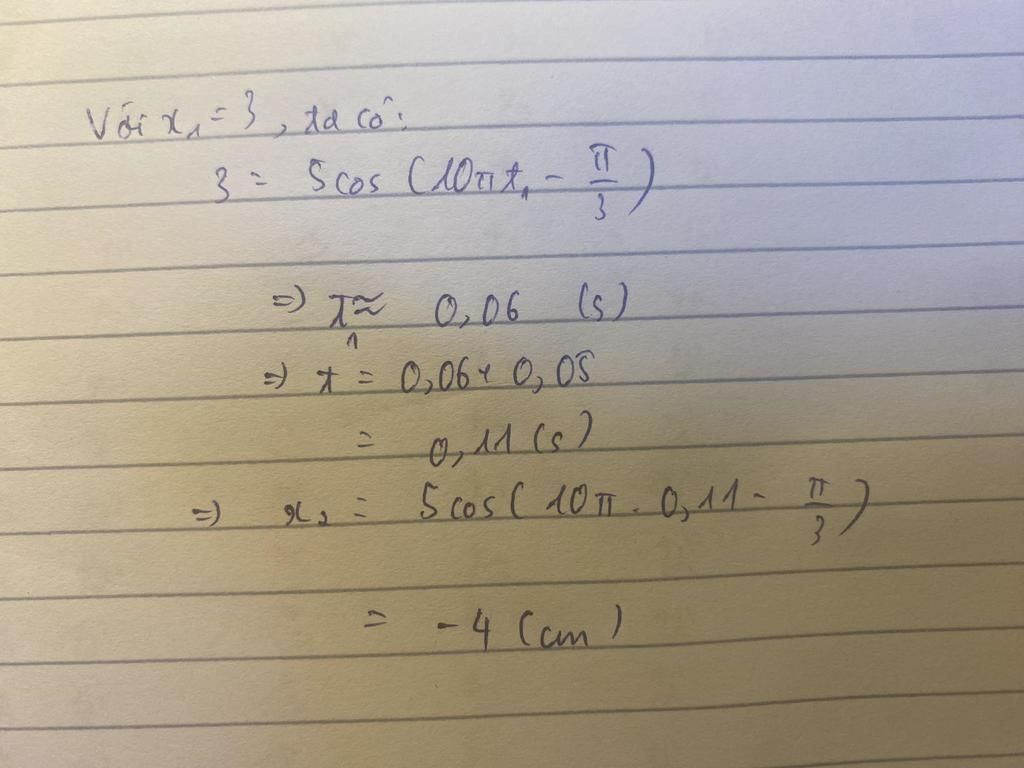 Với x₁ = 3, ta có:
3 = 5cos (10πt₁ - π/3)
=) t₁ ≈ 0,06 (s)
=) t = 0,06 + 0,05
= 0,11 (s)
=) x₂ = 5cos( 10π . 0,11 - π/3)
= -4 (cm)